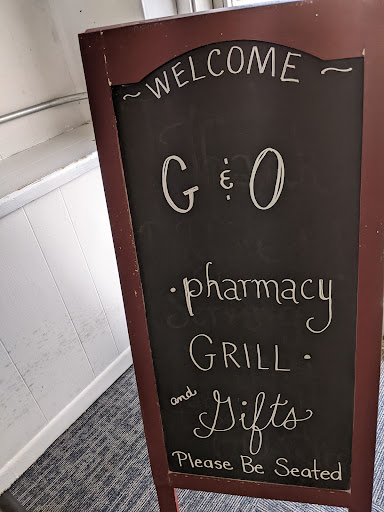 ~ WELCOME ~
G & O
·pharmacy
GRILL·
and Gifts
Please Be Seated